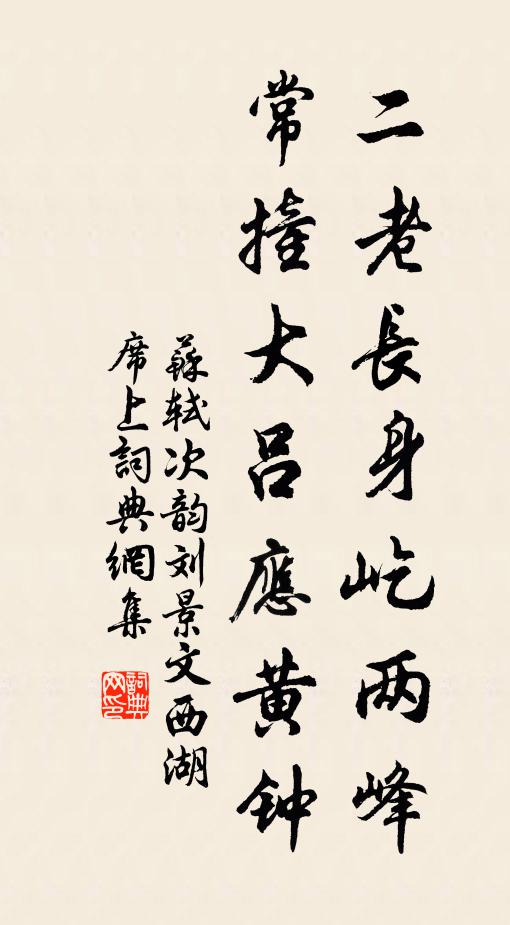 二老長身屹两峰
常撞大吕應黄钟
蘇軾次韵刘景文西湖
席上詞典網集
詞典
网印